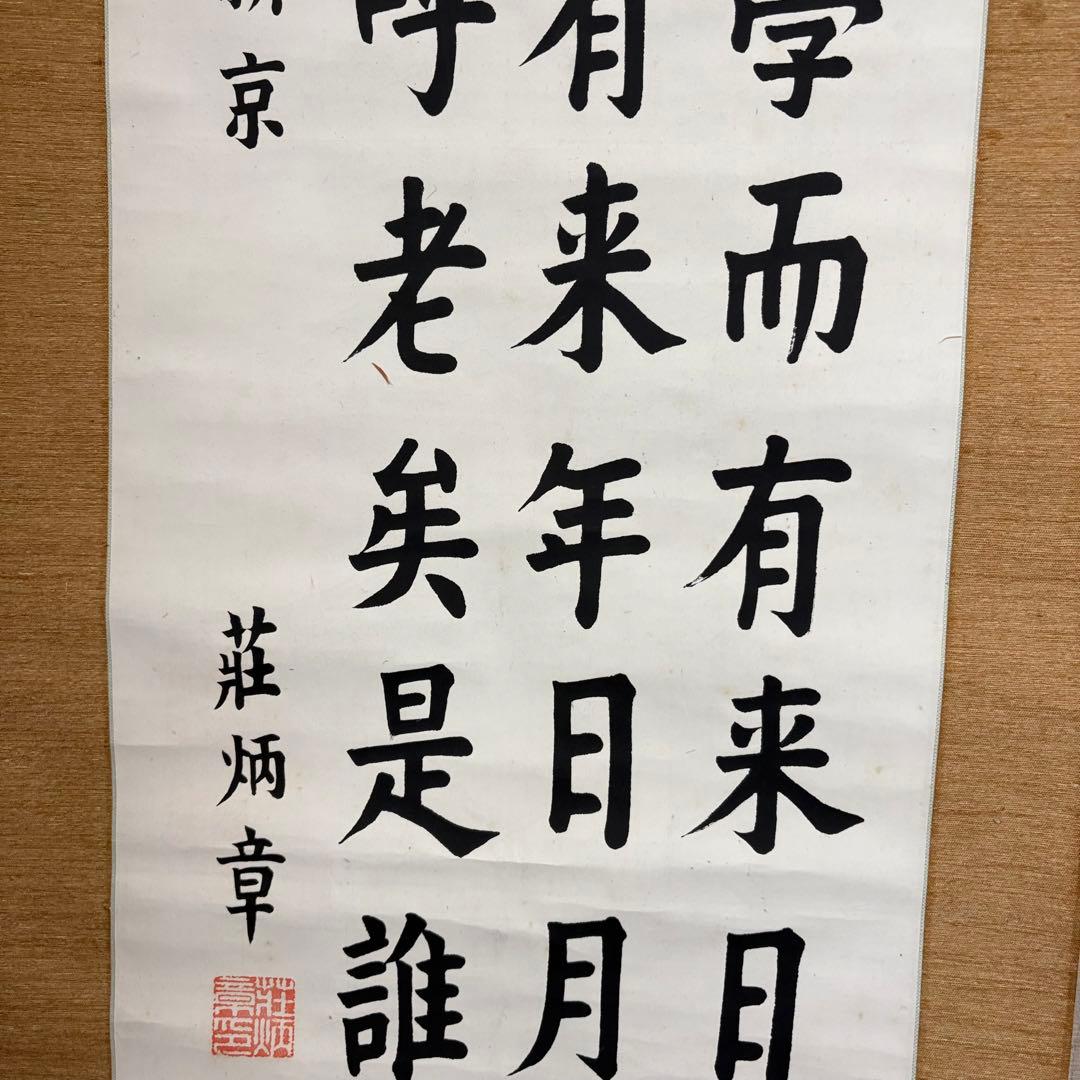 学而有来日
有来年日月
呼老矣是誰
新京
莊炳章
莊炳章印